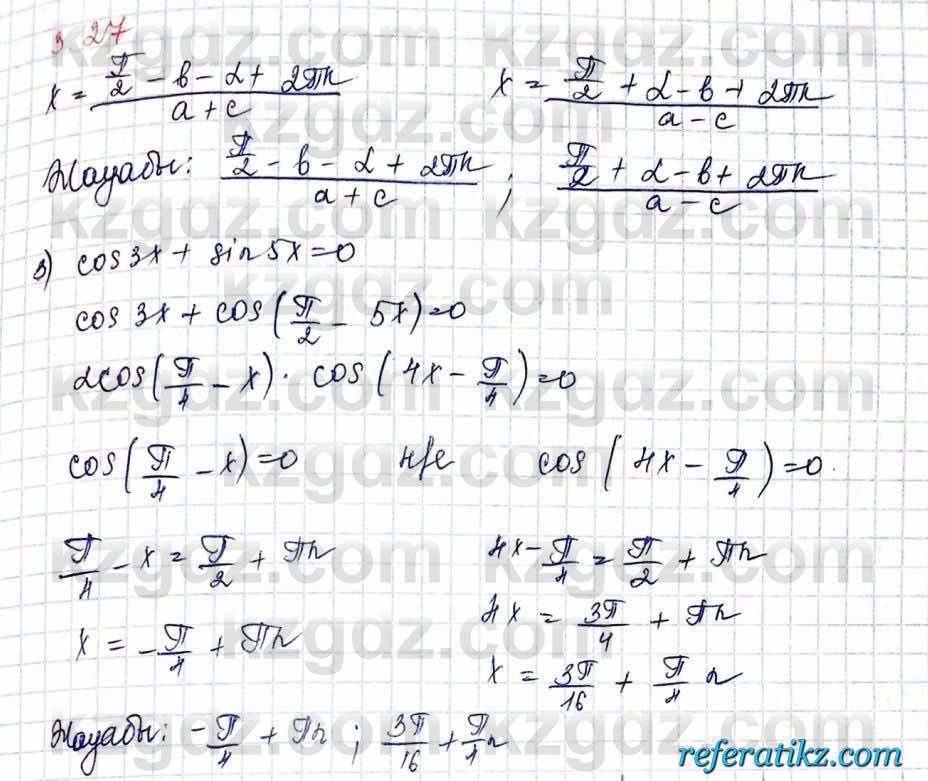 3 27
x = (π/2 - b - α + 2πn)/(a + c)    x = (π/2 + α - b + 2πn)/(a - c)
Жауабы: (π/2 - b - α + 2πn)/(a + c) ; (π/2 + α - b + 2πn)/(a - c)
3) cos 3x + sin 5x = 0
cos 3x + cos(π/2 - 5x) = 0
2cos(π/4 - x) · cos(4x - π/4) = 0
cos(π/4 - x) = 0    н/е    cos(4x - π/4) = 0.
π/4 - x = π/2 + πn    4x - π/4 = π/2 + πn
4x = 3π/4 + πn
x = -π/4 + πn
x = 3π/16 + π/4 n
Жауабы: -π/4 + πn ; 3π/16 + π/4 n
referatikz.com
kzgdz.com